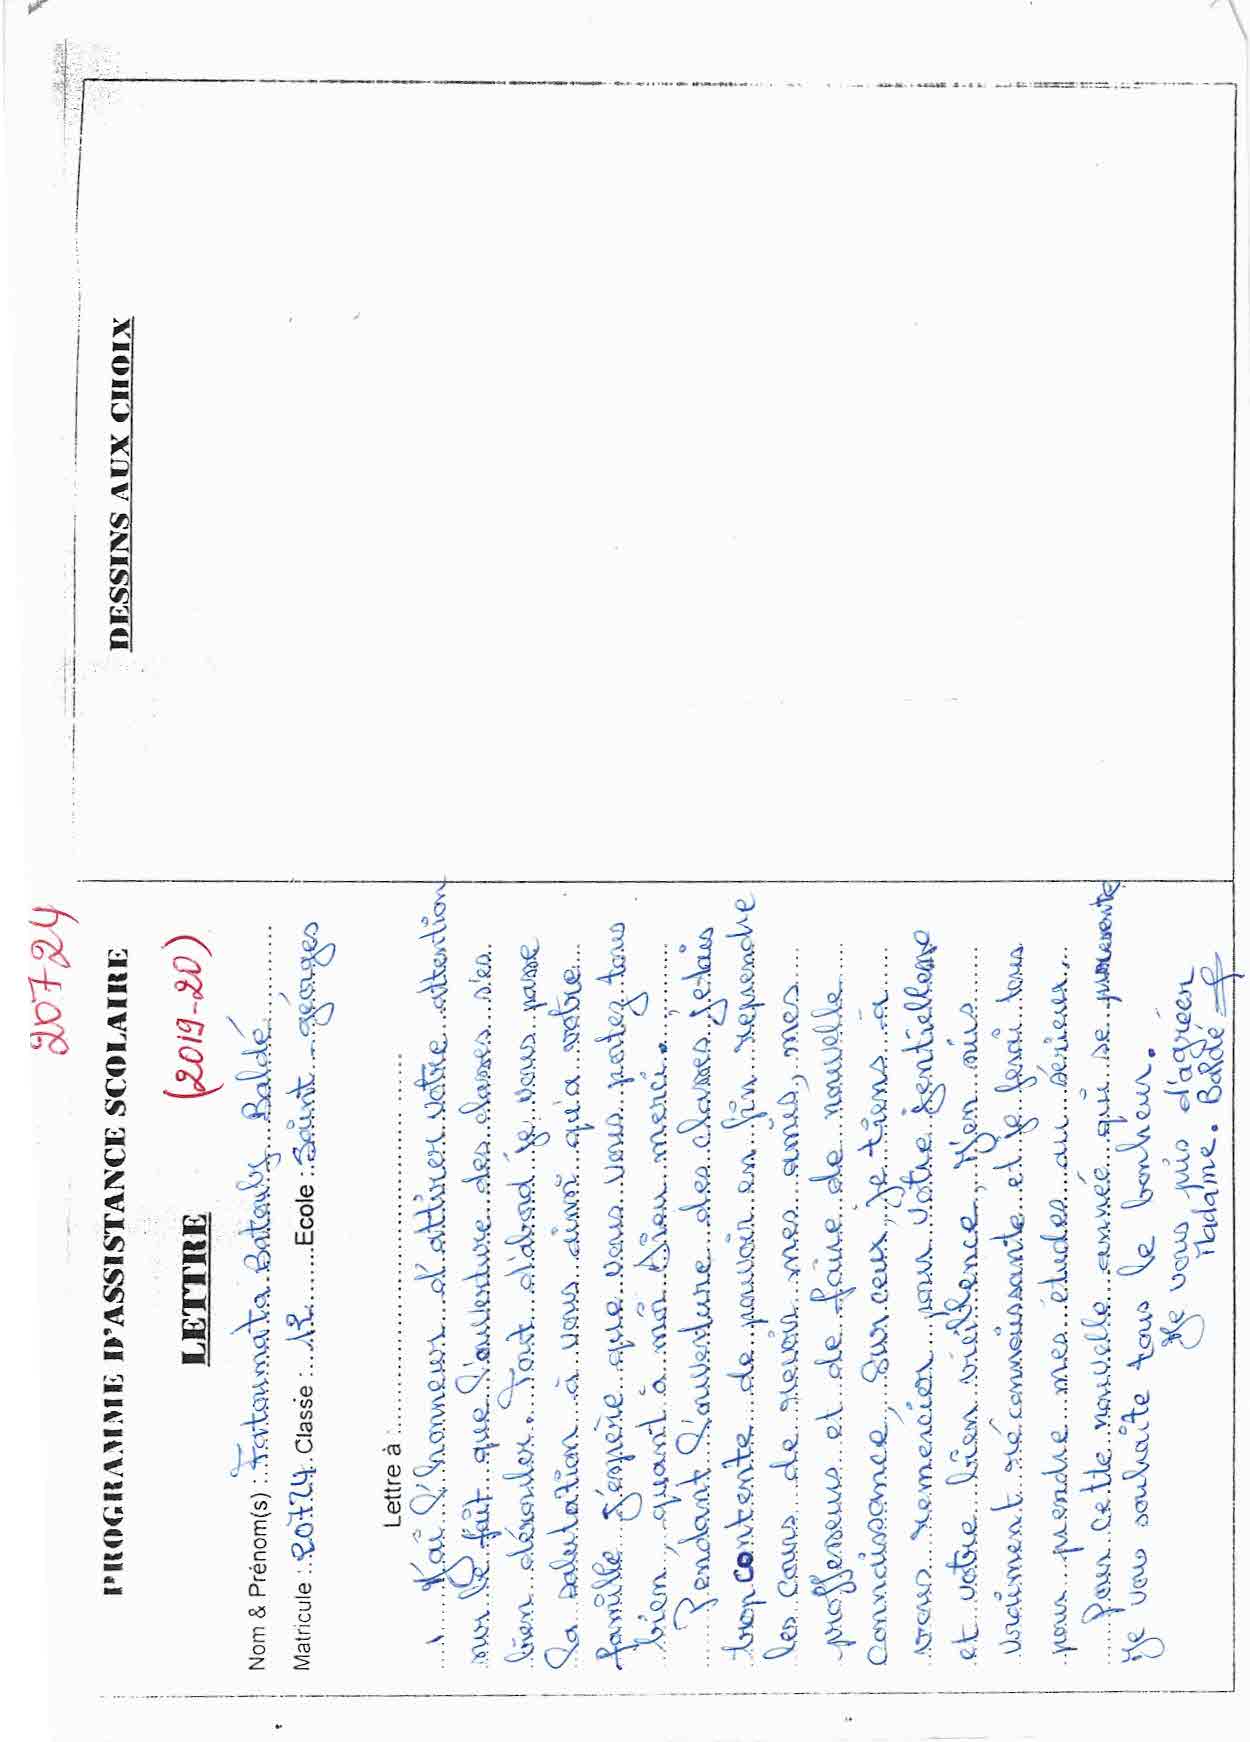 20724
PROGRAMME D'ASSISTANCE SCOLAIRE
(2019-20)
LETTRE
Nom & Prénom(s) : Fatoumata Batouly Baldé
Matricule : 20724 Classe : 12 Ecole : Saint géorges
Lettre à :
J'ai l'honneur d'attirer votre attention
sur le fait que l'ouverture des classes s'es
bien dérouler. Tout d'abord je vous passe
la salutation à vous ainsi qu'a votre
famille j'espère que vous vous portez tous
bien, quant à moi Dieu merci.
Pendant l'ouverture des classes j'etais
trop contente de pouvoir en fin reprendre
les cours de revoir mes amies, mes
proffesseurs et de faire de nouvelle
connaissance, sur ceux, je tiens à
vous remercier pour votre gentiellesse
et votre bien vieillence, j'en suis
vraiment réconnaissante et je ferai tous
pour prendre mes études au sérieux,
Pour cette nouvelle année qui se presente
Je vous souhaite tous le bonheur.
Je vous pris d'agréen
Madame. Baldé
DESSINS AUX CHOIX